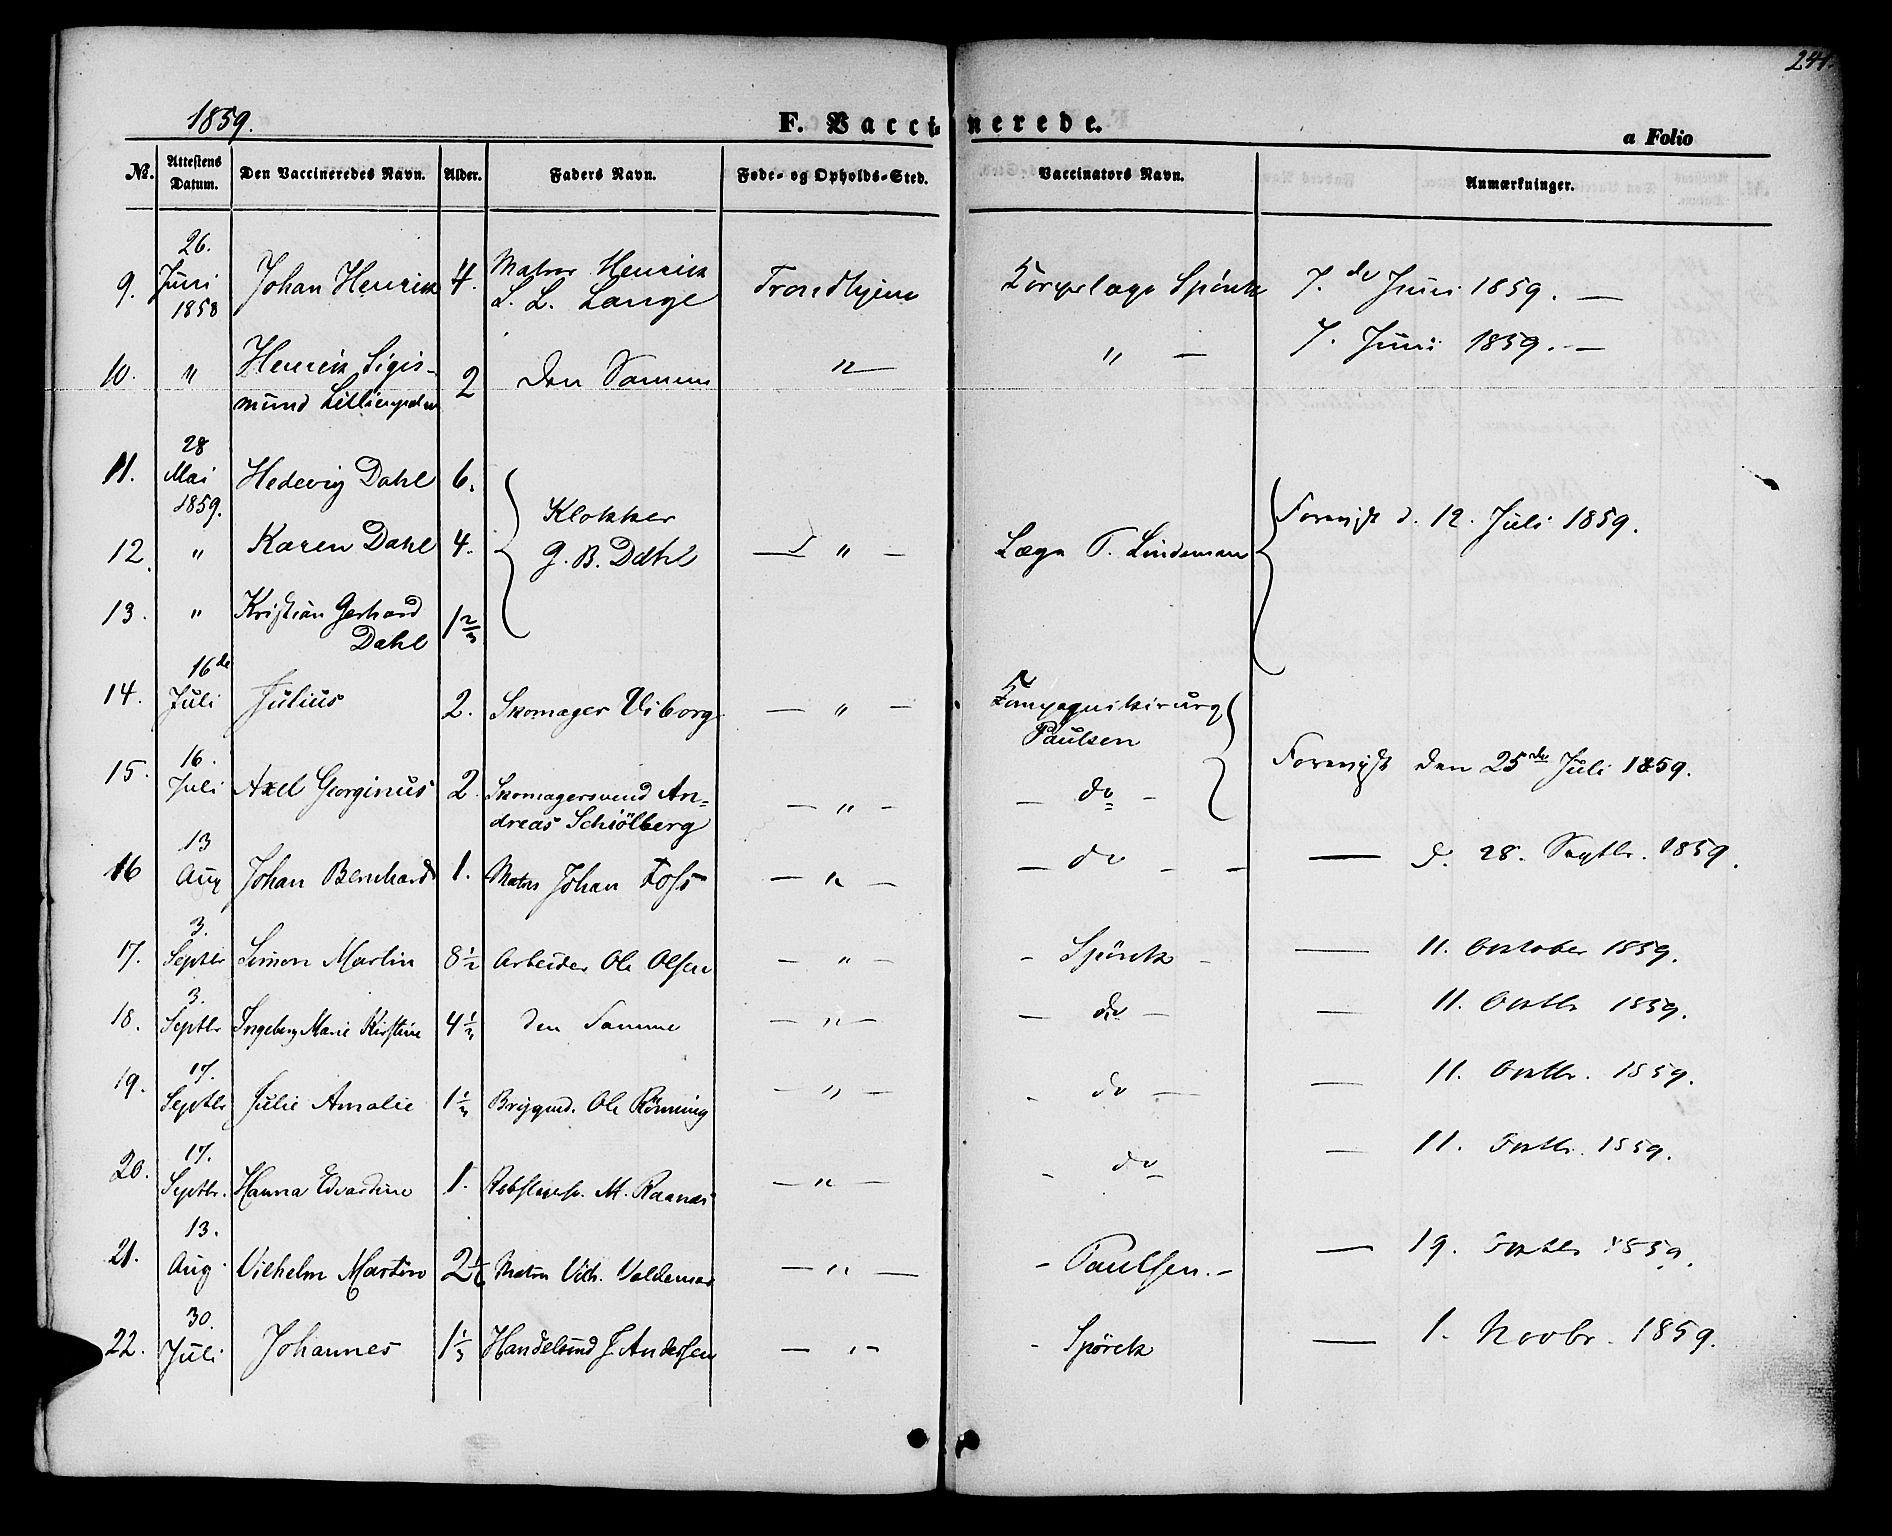 241.
1859.
F. Vaccinerede.
a Folio
No. Attestens Datum. Den Vaccineredes Navn. Alder. Faders Navn. Føde- og Opholds-Sted. Vaccinators Navn. Anmærkninger.
9. 26. Juni 1858 Johan Henrik 4. Matros Henrik L. L. Lange Trondhjem Korpslæge Spörck 7. de Juni 1859. —
10. " Henrik Sigis- 2 den Samme " — " — 7. Juni 1859. —
mund
11. 28 Mai 1859. Hedevig Dahl 6. Klokker G. B. Dahl — " — Læge T. Lindeman Forevist d. 12. Juli 1859.
12. " Karen Dahl 4.
13. " Kristian Gerhard 1 2/3
Dahl
14. 16de Juli Julius 2. Skomager Viborg — " — Kompagnikirurg
Paulsen
15. 16. Juli Axel Georginus 2. Skomagersvend An- — " — — do — Forevist den 25de Juli 1859.
dreas Schiölberg
16 13 Aug Johan Bernhard 1. Matros Johan Foss — " — — do — — — d. 28. Septbr. 1859.
17. 3. Septbr Simon Martin 8 1/2 Arbeider Ole Olsen — " — - Spörck - — 11. October 1859.
18. 3. Septbr Ingeborg Marie Kirstine 4 1/2 den Samme — " — — do — — 11. Octbr 1859.
19. 17. Septbr Julie Amalie 1 1/2 Brygmd. Ole Rönning — " — - do — — 11. Octbr. 1859.
20. 17. Septbr. Hanna Edvardine 1. M. Raanæs — " — - do - — 11. Octbr. 1859.
21. 13. Aug. Vilhelm Martin 2 1/6 Matros Vilh. Valdemar — " — - Paulsen. - — 19. Octbr 1859.
22. 30. Juli Johannes 1 1/3 Handelsmd J. Andersen — " - - Spörck — 1. Novbr. 1859.